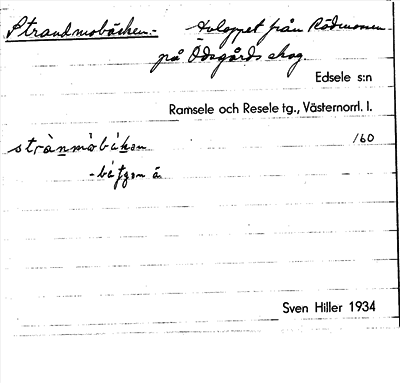 Strandmobäcken.- Avloppet från Rödmoren
på Ödsgårds skog.
Edsele s:n
Ramsele och Resele tg., Västernorrl. l.
160
Sven Hiller 1934